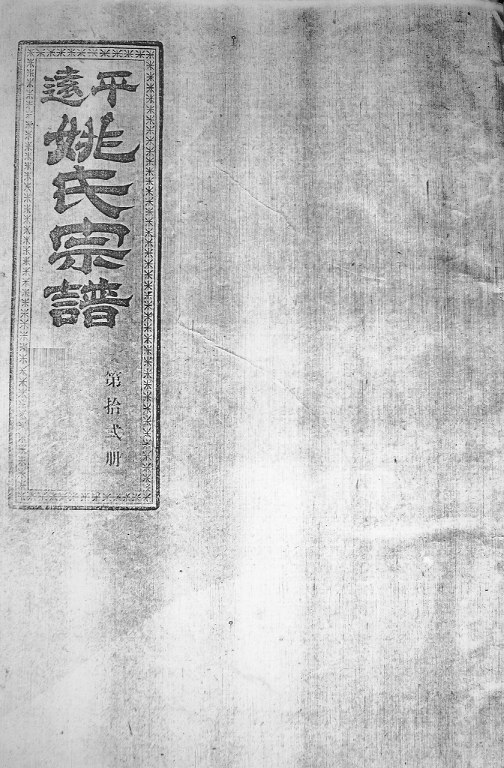 平遠
姚氏宗譜
第拾弍册